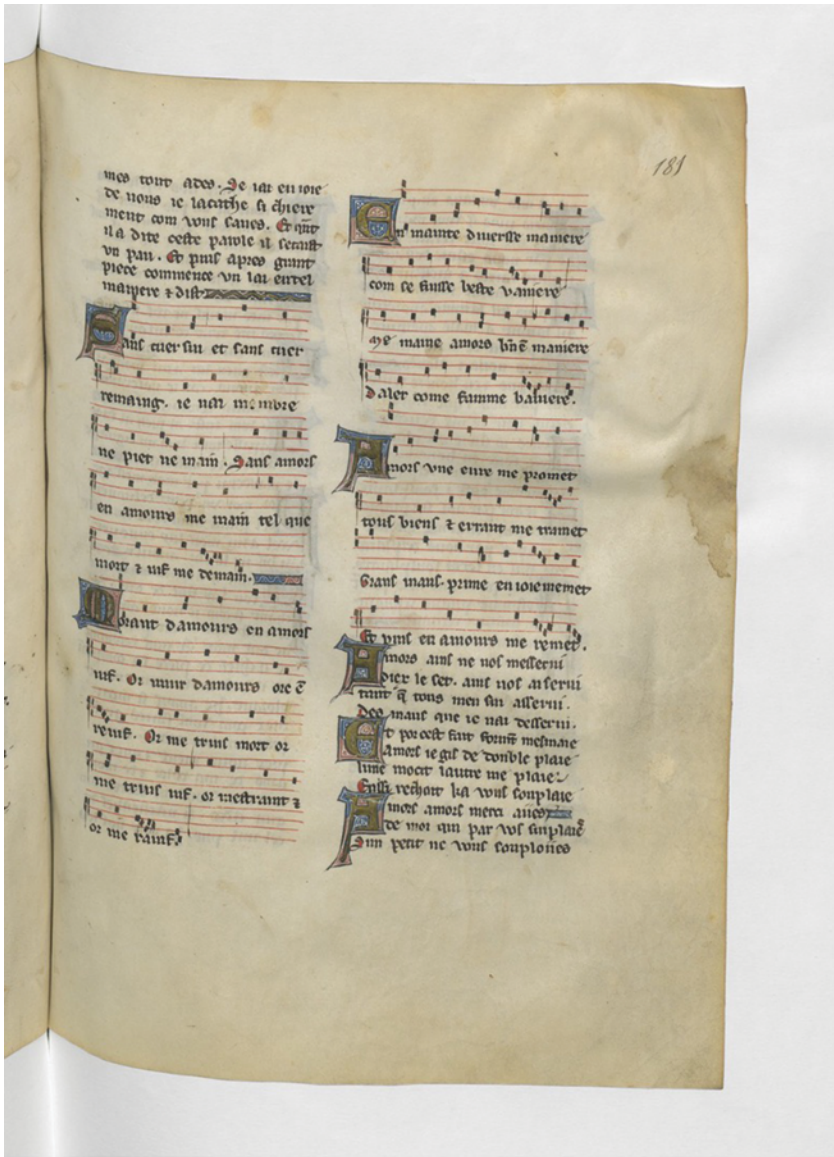 181
mes tout ades. Se iai en ioie
de nous ie lacathe si chiere
ment com vous saues. Et qnt
il a dite ceste parole il se taist
vn pau. Et puis apres grant
piece commence vn lai en tel
maniere & dist
Sans cuer sui et sans cuer
remaing. ie nai membre
ne piet ne main. Sans amors
en amours me main tel que
mort & uif me demain.
Morant damours en amors
uif. Or muir damours ore
reuif. Or me truis mort or
me truis uif. or mestraint &
or me
En mainte diuersse maniere
com se fuisse beste
maine amors maniere
Daler come famme baniere.
Amors vne eure me promet
tous biens & errant me tramet
Grans maus. prime en ioie me met
Et puis en amours me remet.
Amors ains ne uos messerui
Diex le set. ains uos ai serui
tant q tous men sui asserui.
Des maus que ie nai desserui.
Et por cest fait
Amors ie gis de double plaie
lune mocit lautre me plaie.
vous souplaie
Amors amors merci aiies
de moi qui par vos sui plaie
Sun petit ne vous souploiies